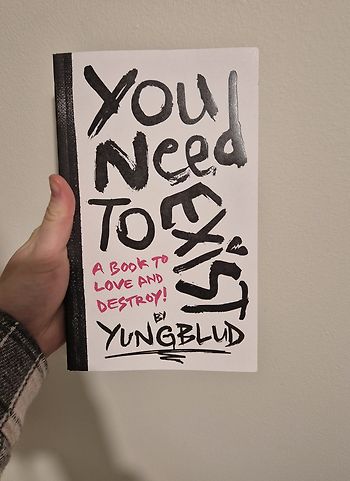 YOU
Need
TO
EXiST
A BOOK TO
LOVE AND
DESTROY!
BY
YUNGBLUD